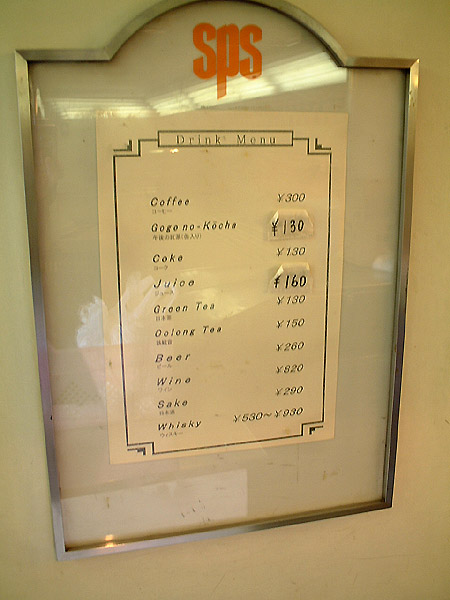 sps
Drink Menu
Coffee ¥300
コーヒー
Gogo no-Kōcha ¥130
午後の紅茶(缶入り)
Coke ¥130
コーク
Juice ¥160
ジュース
Green Tea ¥130
日本茶
Oolong Tea ¥150
烏龍茶
Beer ¥260
ビール
Wine ¥820
ワイン
Sake ¥290
日本酒
Whisky ¥530〜¥930
ウィスキー